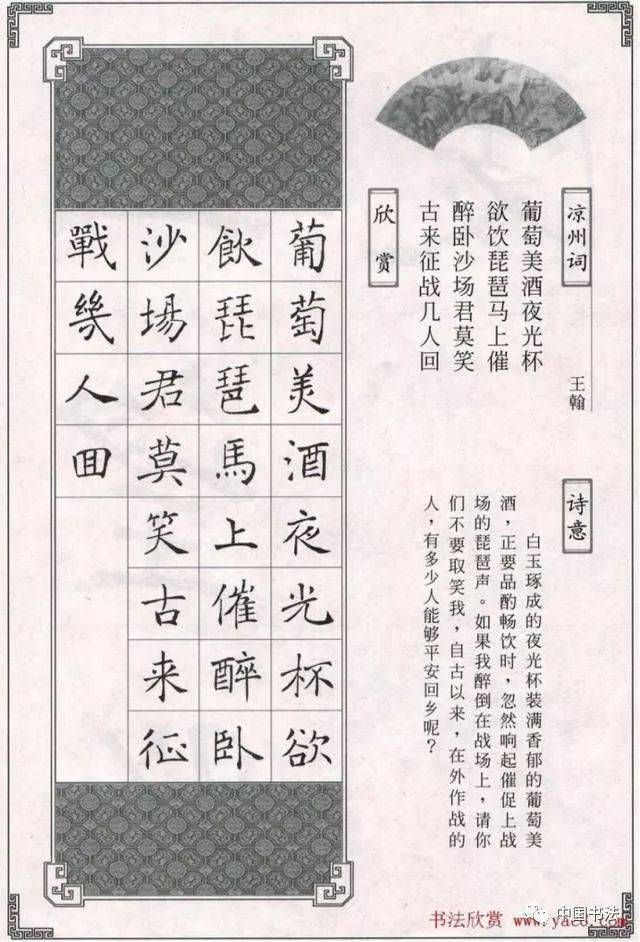 凉州词
王翰
葡萄美酒夜光杯
欲饮琵琶马上催
醉卧沙场君莫笑
古来征战几人回
诗意
白玉琢成的夜光杯装满香郁的葡萄美
酒，正要品酌畅饮时，忽然响起催促上战
场的琵琶声。如果我醉倒在战场上，请你
们不要取笑我，自古以来，在外作战的
人，有多少人能够平安回乡呢？
欣赏
葡萄美酒夜光杯欲
飲琵琶馬上催醉卧
沙場君莫笑古来征
戰幾人回
中国书法
书法欣赏 www.yac8.com